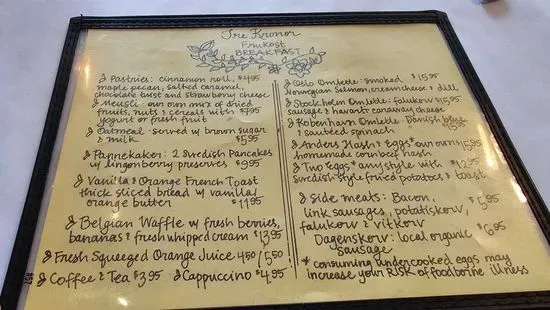 Tre Kronor
Frukost
BREAKFAST
Pastries: cinnamon roll, $4.95
maple pecan, salted caramel,
chocolate twist and strawberry cheese
Meusli: our own mix of dried
fruits, nuts & cereals with $7.95
yogurt or fresh fruit
Oatmeal: served w/ brown sugar
& milk $5.95
Pannekaker: 2 Swedish Pancakes
w/ lingonberry preserves $9.95
Vanilla & Orange French Toast
thick sliced bread w/ vanilla/
orange butter $11.95
Belgian Waffle w/ fresh berries,
bananas & fresh whipped cream $13.95
Fresh Squeezed Orange Juice 4.50/5.50
Coffee & Tea $3.95 Cappuccino $4.95
Oslo Omlette: smoked $15.95
Norwegian Salmon, cream cheese & dill
Stockholm Omlette: falukorv $15.95
sausage & havarti caraway cheese
Kobenhavn Omlette: Danish
& sauteed spinach
Anders Hash & Eggs* our own $15.95
homemade corn beef hash
Two Eggs* any style with $12.95
Swedish style fried potatoes & toast
Side meats: Bacon, $5.95
link sausages, potatiskorv,
falukorv & vitkorv
Dagenskorv: local organic $6.95
Sausage
* consuming undercooked eggs may
increase your RISK of foodborne illness